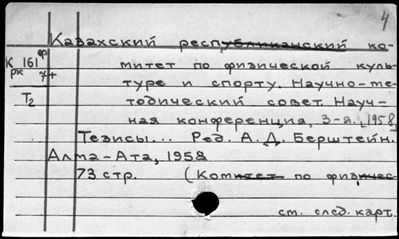 4
Казахский республиканский ко-
К 161 ф
рк 7+
митет по физической куль-
туре и спорту. Научно-ме-
Т2
тодический совет. Науч-
ная конференция, 3-я. 1958
Тезисы... Ред. А. Д. Берштейн.
Алма-Ата, 1958
73 стр. (Комитет по физичес-
см. след. карт.